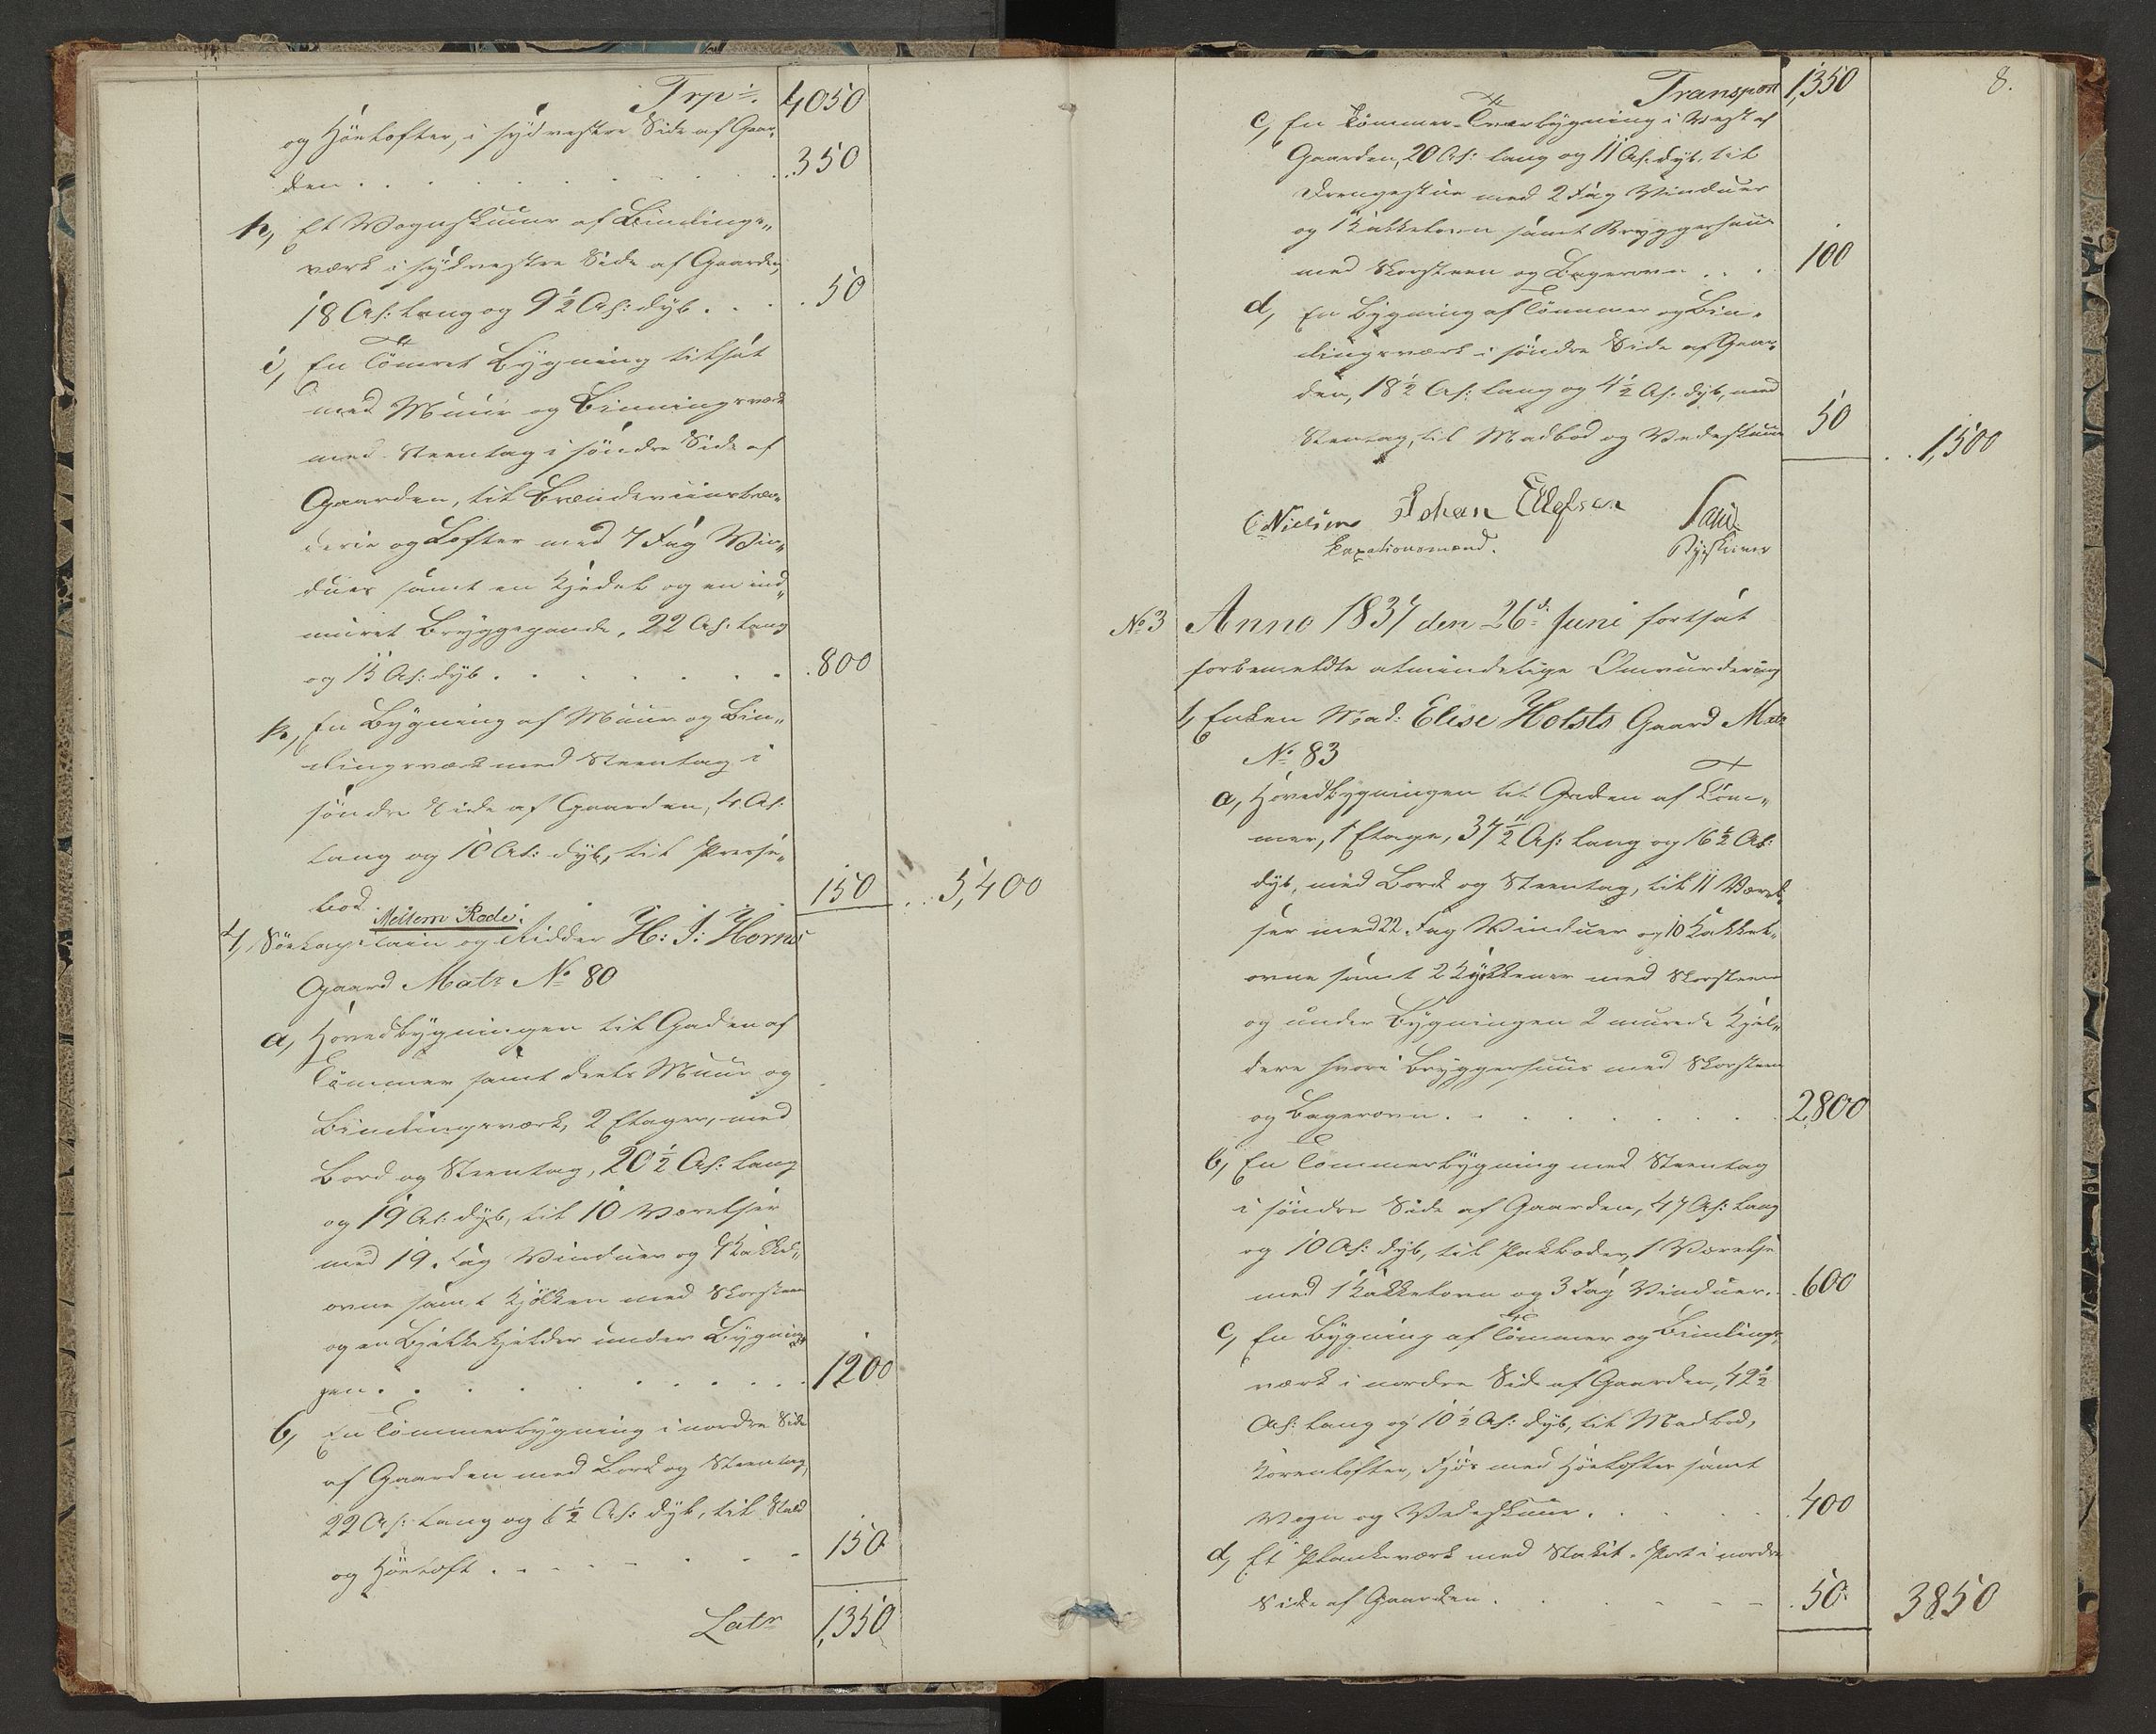 Trp: 4050
og Höelofter, i sydvestre Side af Gaar-
den . . . . . 350
h, Et Vognskuur af Bindings-
værk i sydvestre Side af Gaarden,
18 Al: lang og 9½ Al: dyb . . . 50
i, En Tömret Bygning tilsat
med Muur og Binningsværk
med Steentag i söndre Side af
Gaarden, til Brændeviinsbræn-
derie og Lofter med 7 Fag Vin-
duer samt en Kjedel og en ind-
muret Bryggepande, 22 Al: lang
og 13 Al: dyb . . . . . 800
k, En Bygning af Muur og Bin-
dingsværk med Steentag i
söndre Side af Gaarden, 4 Al:
lang og 10 Al: dyb, til
bod . . . 150 . . 5,400
Mellem Rode.
2, Söecapitain og Ridder H: J: Horns
Gaard Matr No 80
a, Hovedbygningen til Gaden af
Tömmer samt deels Muur og
Bindingsværk, 2 Etager, med
Bord og Steentag, 20½ Al: lang
og 19 Al: dyb, til 10 Værelser
med 19 Fag Vinduer og 7 Kakkel-
ovne samt Kjökken med Skorsteen
og en Bjelkekjelder under Bygnin-
gen . . . . . 1200
b, En Tömmerbygning i nordre Side
af Gaarden med Bord og Steentag,
22 Al: lang og 6½ Al: dyb, til Stald
og Höeloft . . . . . 150
Latr 1,350
8.
Transport 1,350
c, En Tömmer-Tværbygning i Vest af
Gaarden, 20 Al: lang og 11 Al: dyb, til
Drengestue med 2 Fag Vinduer
og 1 Kakkelovn samt Bryggerhuus
med Skorsteen og Bagerovn . . . 100
d, En Bygning af Tömmer og Bin-
dingsværk i söndre Side af Gaar-
den, 18½ Al: lang og 4½ Al: dyb, med
Steentag, til Madbod og Vedeskuur 50 . . 1,500
C Nielsen Johan Ellefsen
Taxationsmænd. Byeskriver
No 3 Anno 1837 den 26d: Juni fortsat
forbemeldte almindelige Omvurdering
1, Enken Mad: Elise Holsts Gaard Matr
No 83
a, Hovedbygningen til Gaden af Töm-
mer, 1 Etage, 37½ Al: lang og 16½ Al:
dyb, med Bord og Steentag, til 11 Værel-
ser med 22 Fag Vinduer og 10 Kakkel-
ovne samt 2 Kjökkener med Skorsteen
og under Bygningen 2 murede Kjel-
dere hvori Bryggerhuus med Skorsteen
og Bagerovn . . . . . 2,800
b, En Tömmerbygning med Steentag
i söndre Side af Gaarden, 47 Al: lang
og 10 Al: dyb, til Pakboder, 1 Værelse
med 1 Kakkelovn og 3 Fag Vinduer. 600
c, En Bygning af Tömmer og Bindings-
værk i nordre Side af Gaarden, 42½
Al: lang og 10½ Al: dyb, til Madbod,
Kornlofter, Fjös med Höelofter samt
Vogn og Vedeskuur . . . . 400
d, Et Plankeværk med Stakit-Port i nordre
Side af Gaarden . . . . 50 3850